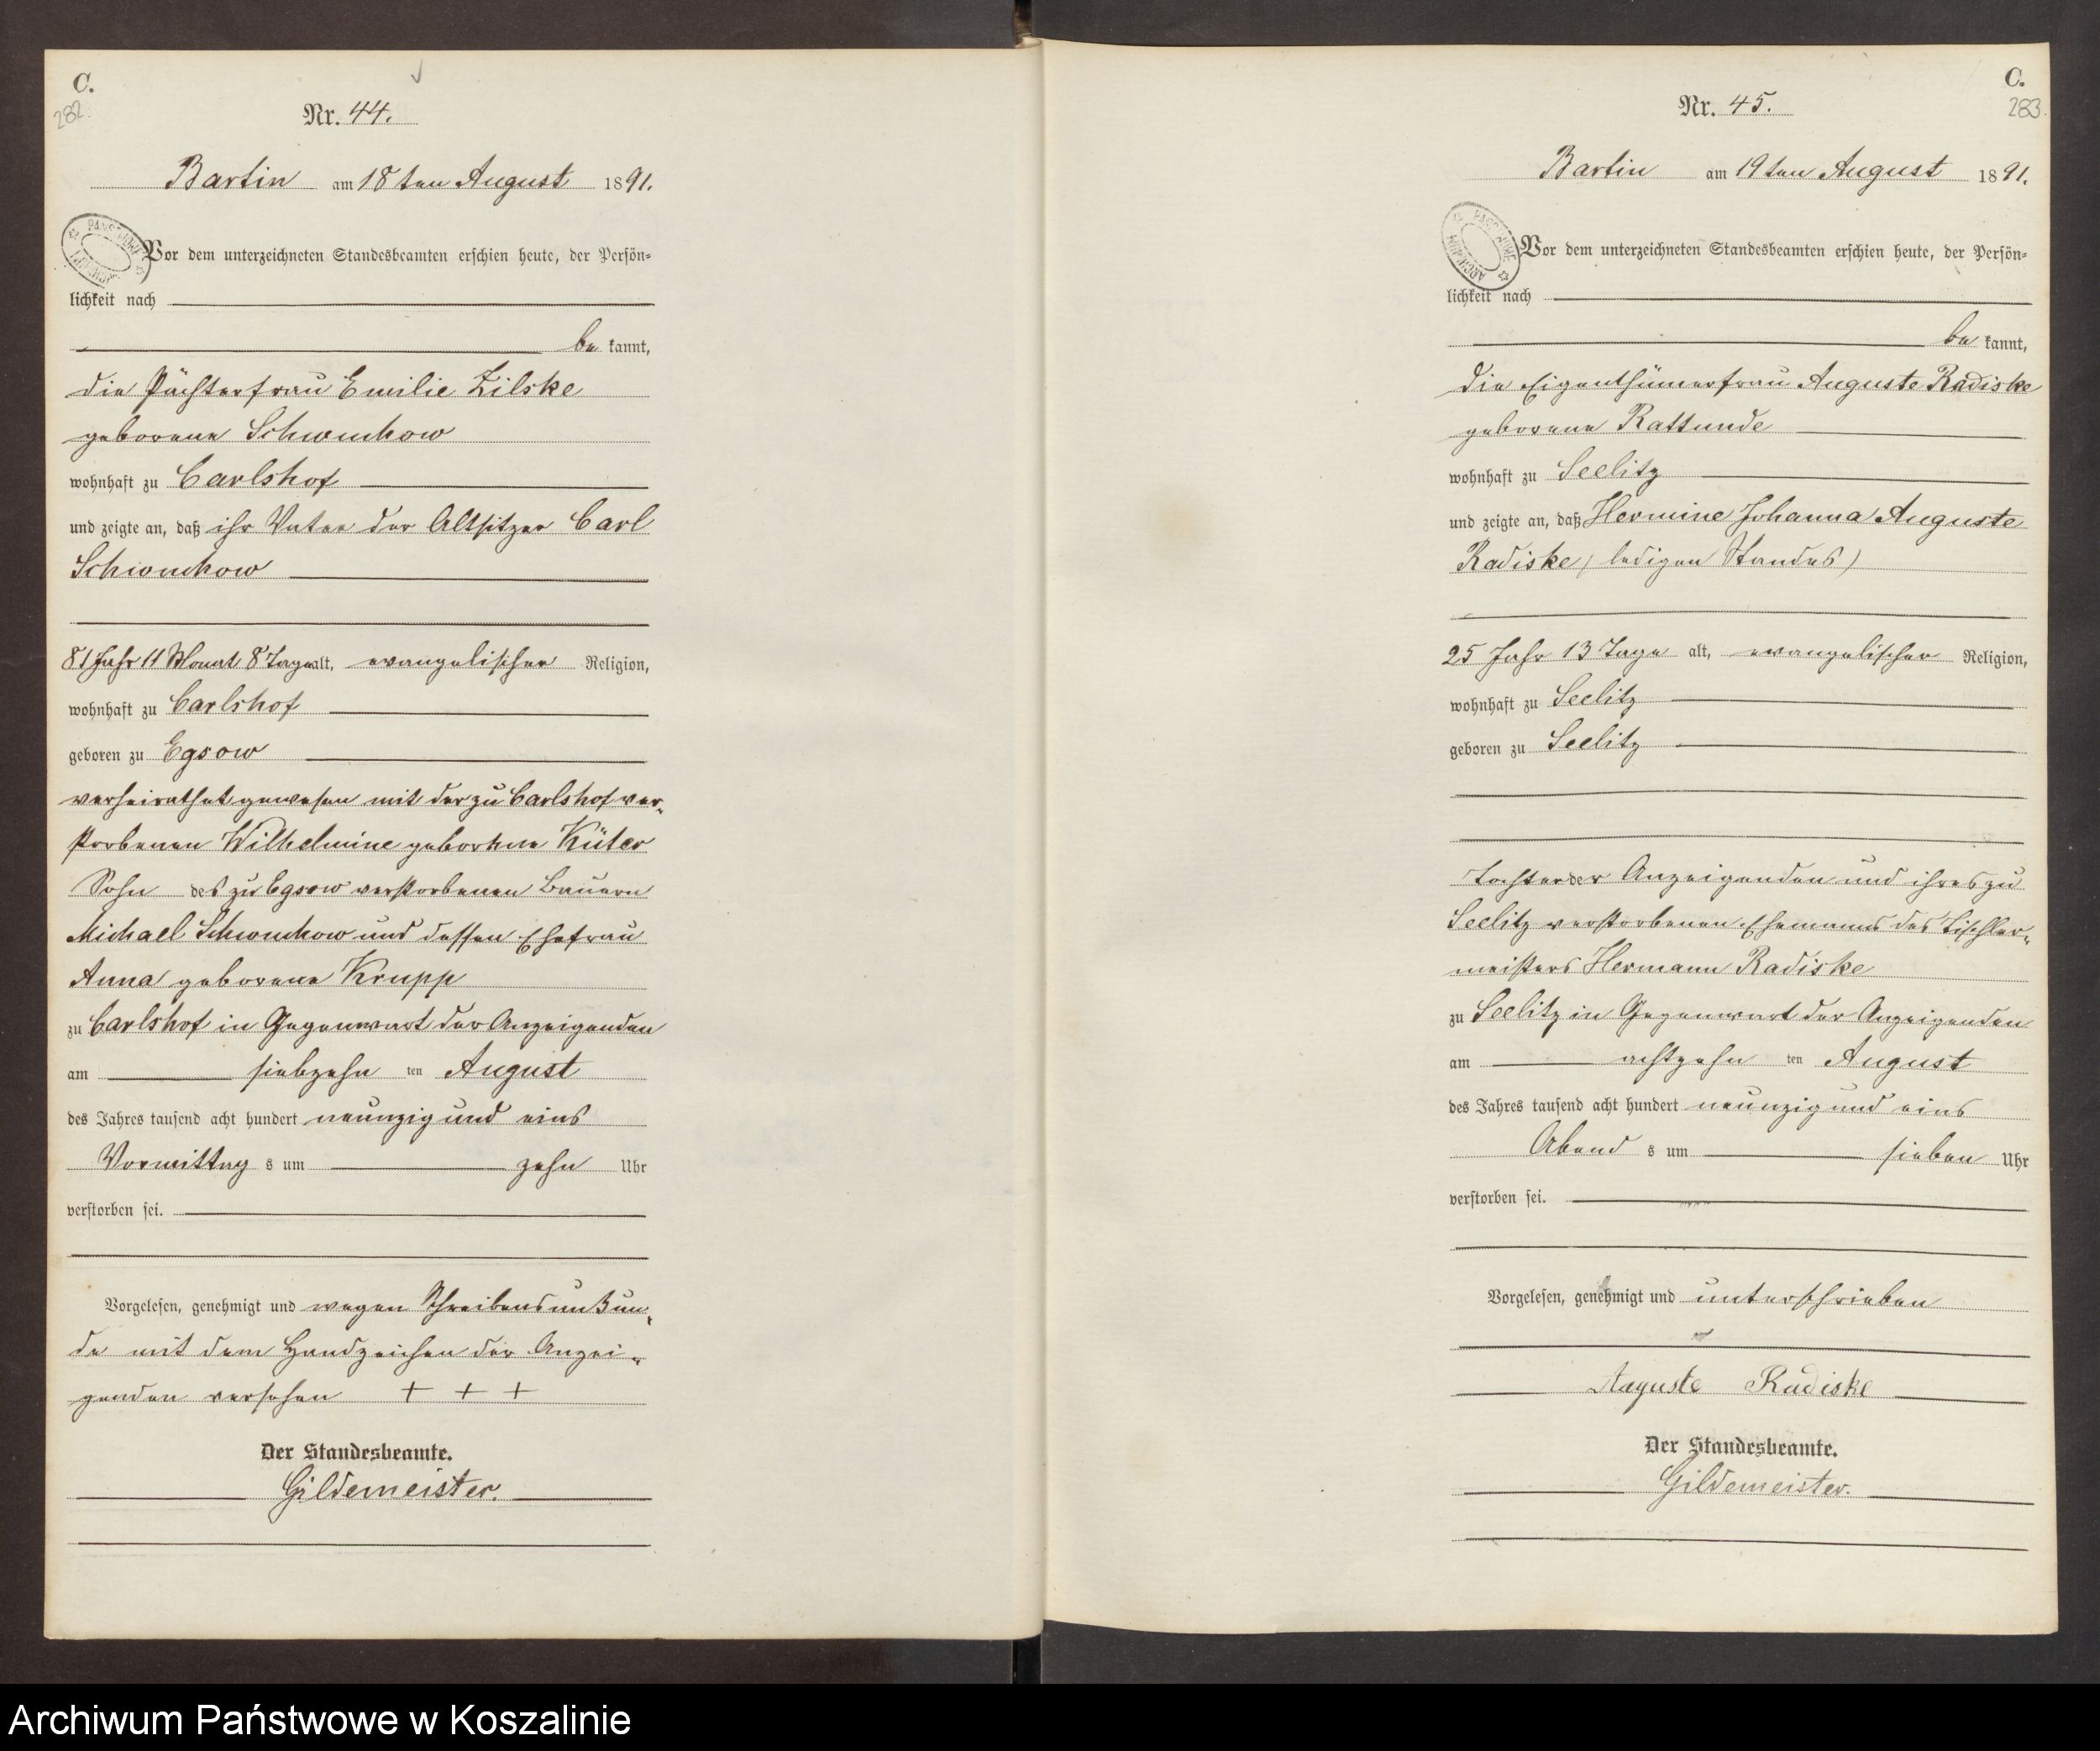 C.
282.
Nr. 44.
Bartin am 18ten August 1891.
Vor dem unterzeichneten Standesbeamten erschien heute, der Persön=
lichkeit nach
bekannt,
die Pächterfrau Emilie Zilske
geborene
wohnhaft zu Carlshof
und zeigte an, daß ihr Vater der Altsitzer Carl
81 Jahr 11 Monat 8 Tage alt, evangelischer Religion,
wohnhaft zu Carlshof
geboren zu Egsow
verheirathet gewesen mit der zu Carlshof ver„
storbenen Wilhelmine geborene Küter
Sohn des zu Egsow verstorbenen Bauern
Michael und dessen Ehefrau
Anna geborene Krupp
zu Carlshof in Gegenwart der Anzeigenden
am siebzehn ten August
des Jahres tausend acht hundert neunzig und eins
Vormittag s um zehn Uhr
verstorben sei.
Vorgelesen, genehmigt und wegen Schreibensunkun„
de mit dem Handzeichen der Anzei„
genden versehen + + +
Der Standesbeamte.
Gildemeister.
C.
283.
Nr. 45.
Bartin am 19ten August 1891.
Vor dem unterzeichneten Standesbeamten erschien heute, der Persön=
lichkeit nach
bekannt,
die Eigenthümerfrau Auguste Radiske
geborene Rattunde
wohnhaft zu Seelitz
und zeigte an, daß Hermine Johanna Auguste
Radiske (ledigen Standes)
25 Jahr 13 Tage alt, evangelischer Religion,
wohnhaft zu Seelitz
geboren zu Seelitz
Tochter der Anzeigenden und ihres zu
Seelitz verstorbenen Ehemanns des Tischler„
meisters Hermann Radiske
zu Seelitz in Gegenwart der Anzeigenden
am achtzehn ten August
des Jahres tausend acht hundert neunzig und eins
Abend s um sieben Uhr
verstorben sei.
Vorgelesen, genehmigt und unterschrieben
Auguste Radiske
Der Standesbeamte.
Gildemeister.
Archiwum Państwowe w Koszalinie